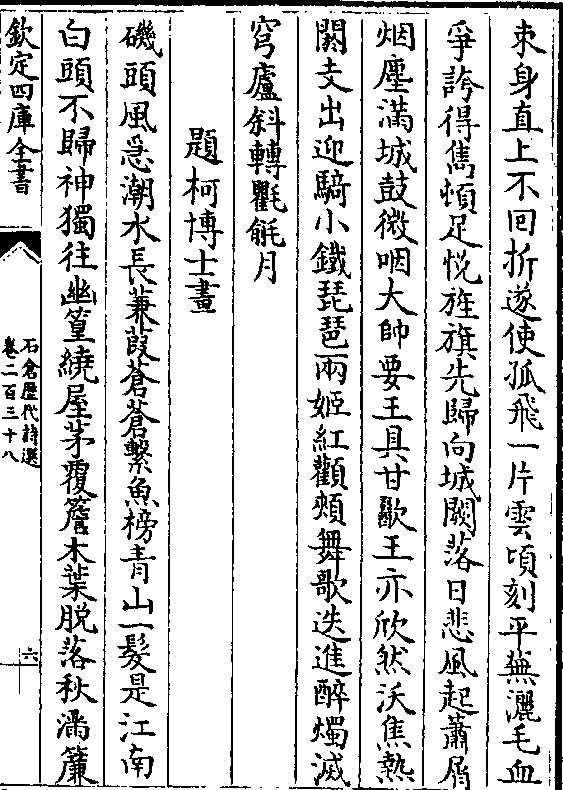 束身直上不回折遂使孤飛一片雲頃刻平蕪灑毛血
爭誇得雋頓足悅旌旗先歸向城闕落日悲風起蕭屑
烟塵滿城鼓微咽大帥要王具甘歠王亦欣然沃焦熱
閼支出迎騎小鐵琵琶兩姬紅顴頰舞歌迭進醉燭滅
穹廬斜轉氍毹月
題柯博士畫
磯頭風急潮水長蒹葭蒼蒼繫魚榜青山一髮是江南
白頭不歸神獨往幽篁繞屋茅覆簷木葉脱落秋滿簾
欽定四庫全書
石倉歷代詩選
卷二百三十八
六